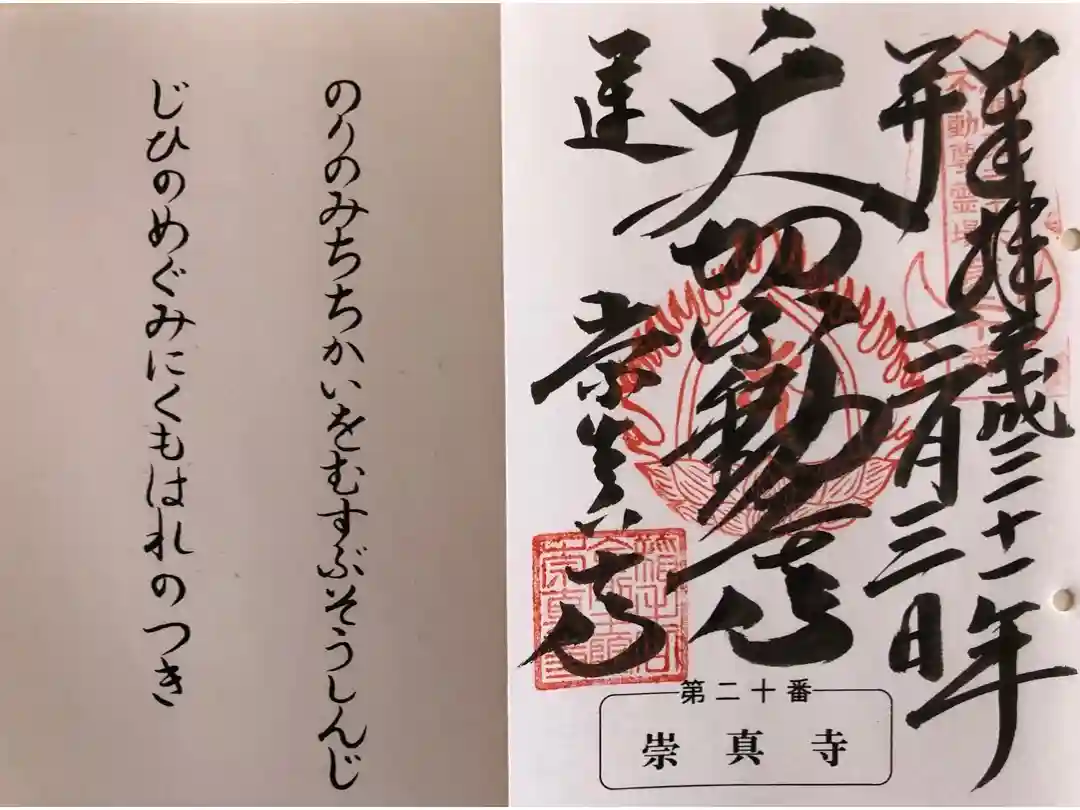 奉拝 平成三十一年
三月三日
開
大切不動尊
運
崇真寺
不動尊霊場第二十番
第二十番
崇真寺
のりのみちちかいをむすぶそうしんじ
じひのめぐみにくもはれのつき